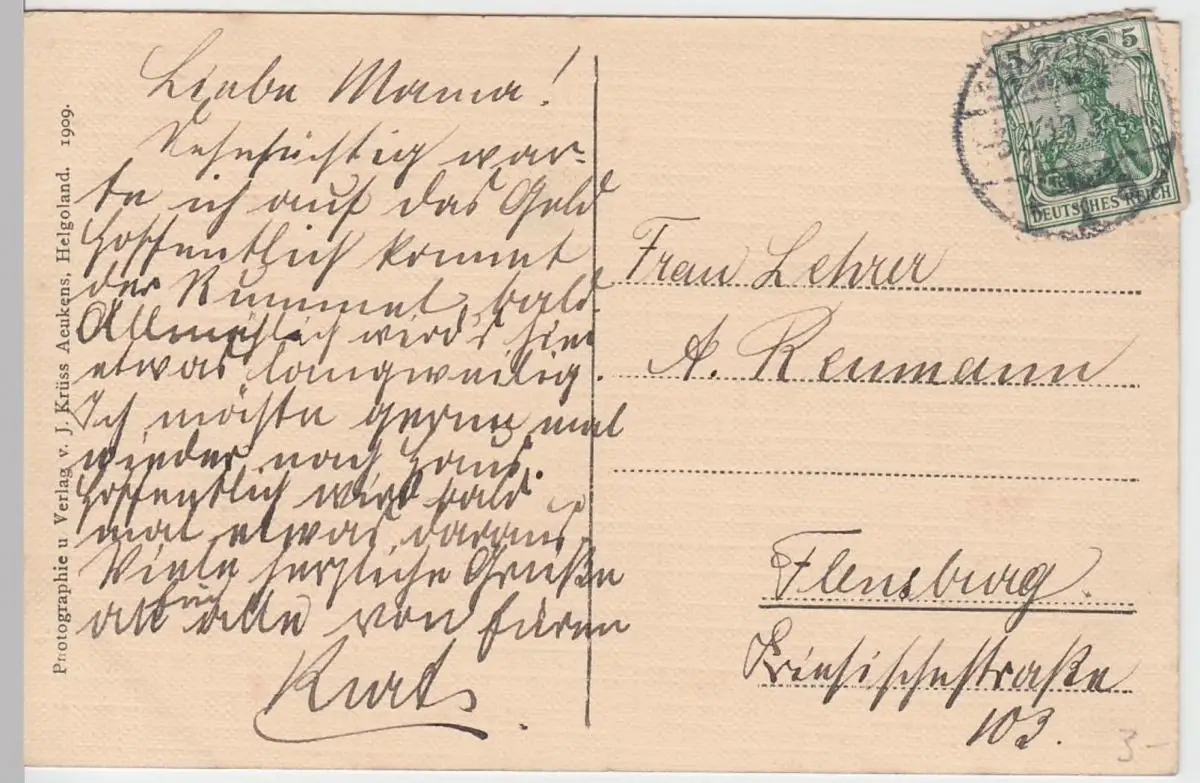 Photographie u Verlag v. J. Krüss Aeukens, Helgoland. 1909.
Liebe Mama!
Sehnsüchtig war-
te ich auf das Geld
hoffentlich kommt
der Rummel bald.
Allmählich wird's hier
etwas langweilig.
Ich möchte gerne mal
wieder nach Haus.
Hoffentlich wird bald
mal etwas daraus.
Viele herzliche Grüße
an Euch alle von Eurem
Kurt.
5 5
DEUTSCHES REICH
Frau Lehrer
A. Reumann
Flensburg.
Friesischestraße
103.
3-